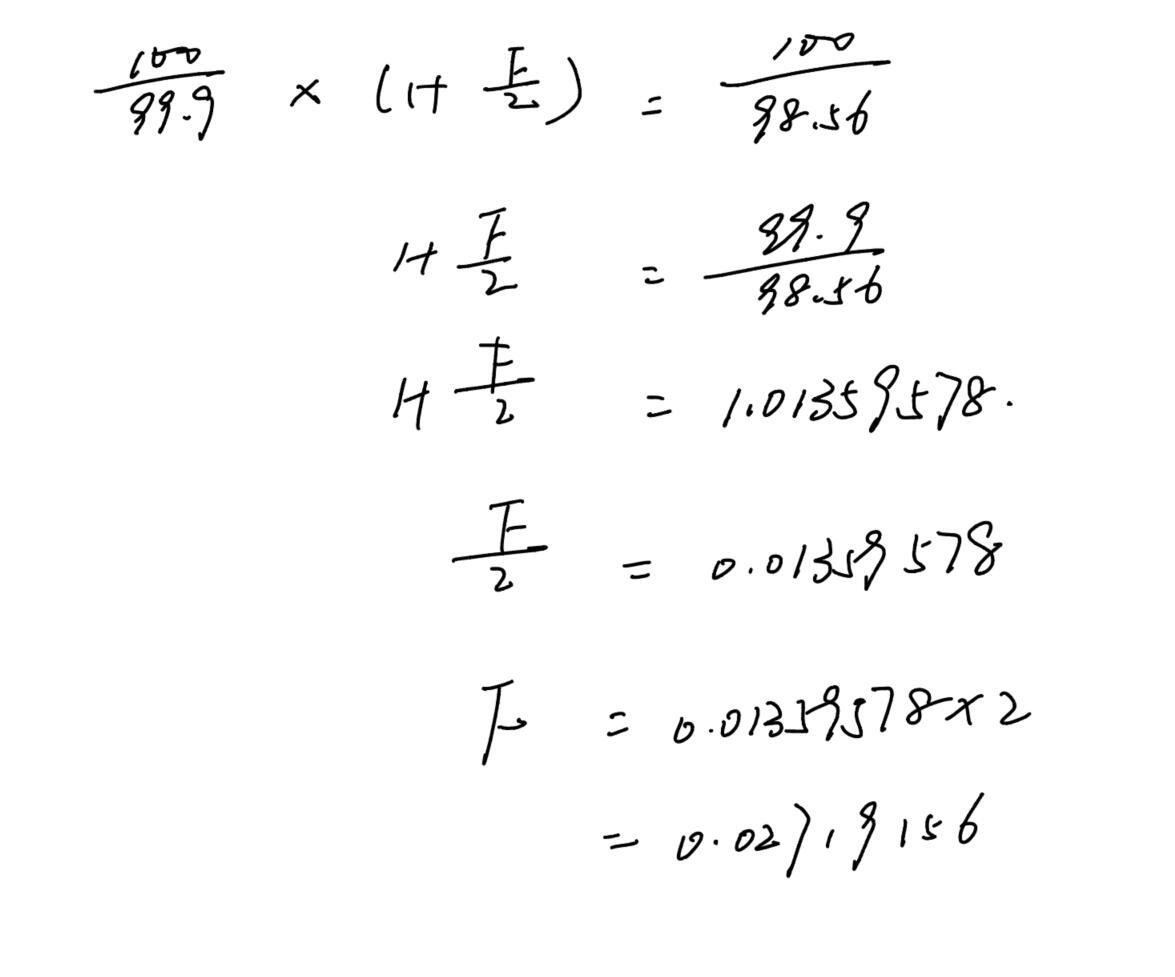 100/99.9 × (1+ F/2) = 100/98.56
1+ F/2 = 99.9/98.56
1+ F/2 = 1.01359578.
F/2 = 0.01359578
F = 0.01359578×2
= 0.02719156